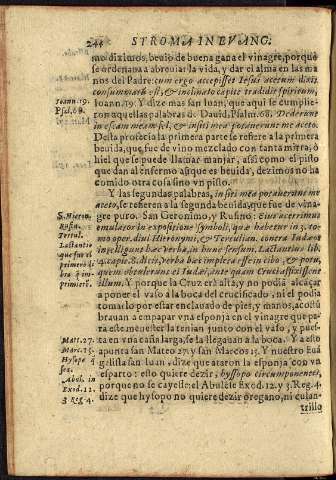 244 STROMA IN EVANG.
mo dixi arriba, beuio de buena gana el vinagre, porque
se ordenana a abreuiar la vida, y dar el alma en las ma
nos del Padre: cum ergo accepisset Iesus acetum dixit
consummatũ est, & inclinato capite tradidit spiritum,
Ioann. 19. Y dize mas san Iuan, que aqui se cumplie-
ron aquellas palabras d. Dauid, Psalm. 68. Dederunt
in escam meam fel, & in siti mea potauerunt me aceto.
Desta profecia la primera parte se refiere a la primera
beuida, que fue de vino mezclado con tanta mirra, ò
hiel que se puede llamar manjar, assi como el pisto
que dan al enfermo assi que es beuida, dezimos no ha
comido otra cosa sino vn pisto.
Y las segundas palabras, in siti mea potauerunt me
aceto, se refieren a la segunda beuida, que fue de vina-
gre puro. San Geronimo, y Rufino: Eius acerrimus
emulator in expositione symboli, quæ habetur in 3. to-
mo oper. diui Hieronymi, & Tertulian. contra Iudæos
intelligunt hæc verba, in hunc sensum. Lactantius lib.
4. capit. 8. dicit, verba hæc impleta esse in cibo, & potu,
quem obtulerunt ei Iudæi, ante quam Crucifixissent
illum. Y porque la Cruz era alta, y no podia alcaçar
a poner el vaso a la boca del crucificado, ni el podia
tomarlo por estar enclauado de pies, y manos, acostũ
brauan a empapar vna esponja en el vinagre que pa-
ra este menester la tenian junto con el vaso, y pues-
ta en vna caña larga, se la llegauan a la boca. Y a esto
apunta san Mateo 27. y san Marcos 15. Y nuestro Euã
gelista san Iuan, dize que ataron la esponja con vn
esparto: esto quiere dezir, hyssopo circumponentes,
porque no se cayesse: el Abulẽse Exod. 12. y 3. Reg. 4.
dize que hysopo no quiere dezir oregano, ni culan-
trillo
Ioann. 19.
Psal. 68.
S. Hieron.
Rufin.
Tertul.
Lactantio
que fue el
primero di
bra q̃ im-
primierõ.
Matt. 27.
Marc. 15.
Hysopo q̃
sea.
Abul. in
Exod. 12.
3. Reg. 4.